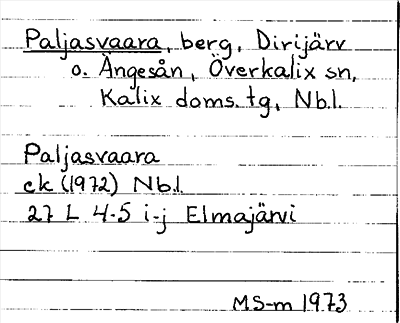 Paljasvaara, berg, Dirijärv
o. Ängesån, Överkalix sn,
Kalix doms. tg, Nb.l.
Paljasvaara
ek (1972) Nb.l.
27 L 4-5 i-j Elmajärvi
MS-m 1973